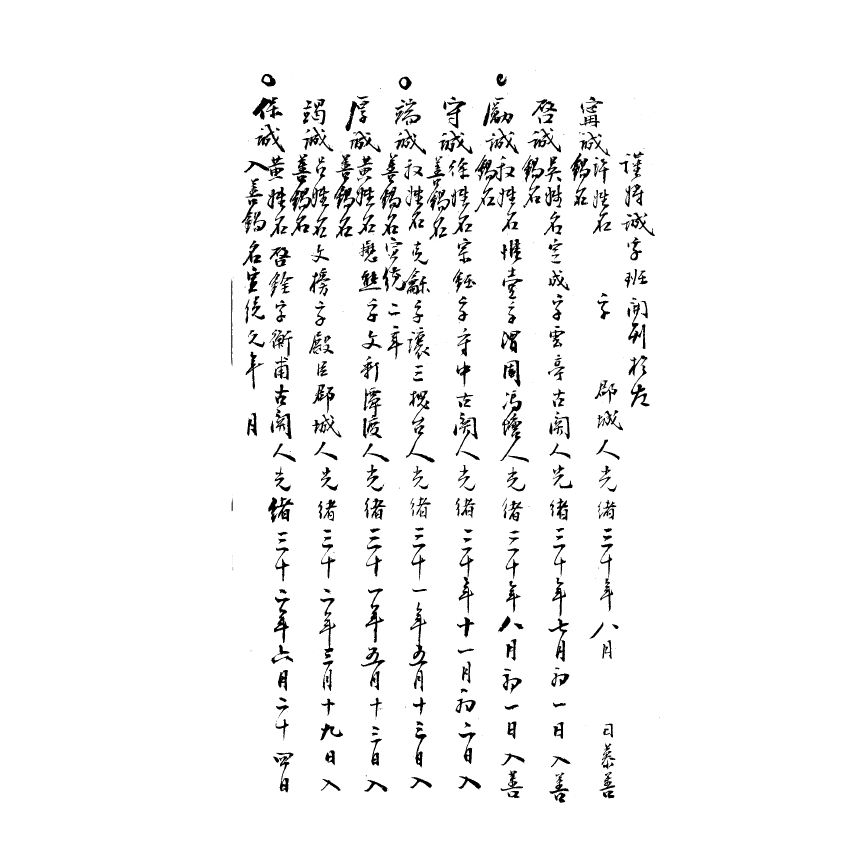 謹將誠字班開列於左
甯誠許姓名　字　郡城人光緒三十年八月　日慕善
錫名
啓誠吳姓名定成字雲亭古關人光緒三十年七月初一日入善
錫名
勵誠 姓名惟壹字潤周馮塘人光緒三十年八月初一日入善
錫名
守誠徐姓名宗鈺字守中古關人光緒三十年十一月初二日入
善錫名
端誠 姓名克龢字讓三槐台人光緒三十一年五月十三日入
善錫名宣統二年
厚誠黃姓名懋熊字文彩潭渡人光緒三十一年五月十三日入
善錫名
竭誠呂姓名文榜字殿臣郡城人光緒三十二年三月十九日入
善錫名
保誠黃姓名啓銓字衡甫古關人光緒三十二年六月二十四日
入善錫名宣統元年　月